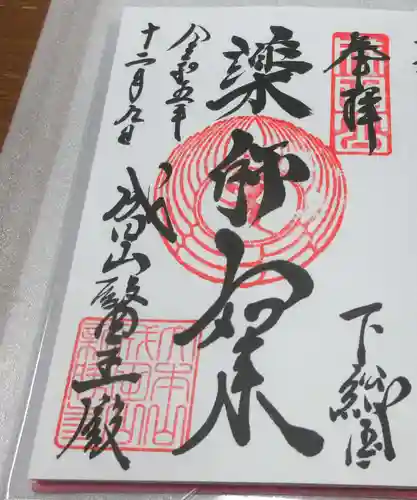 奉拝
下総国
薬師如来
成田山醫王殿
令和五年
十二月九日